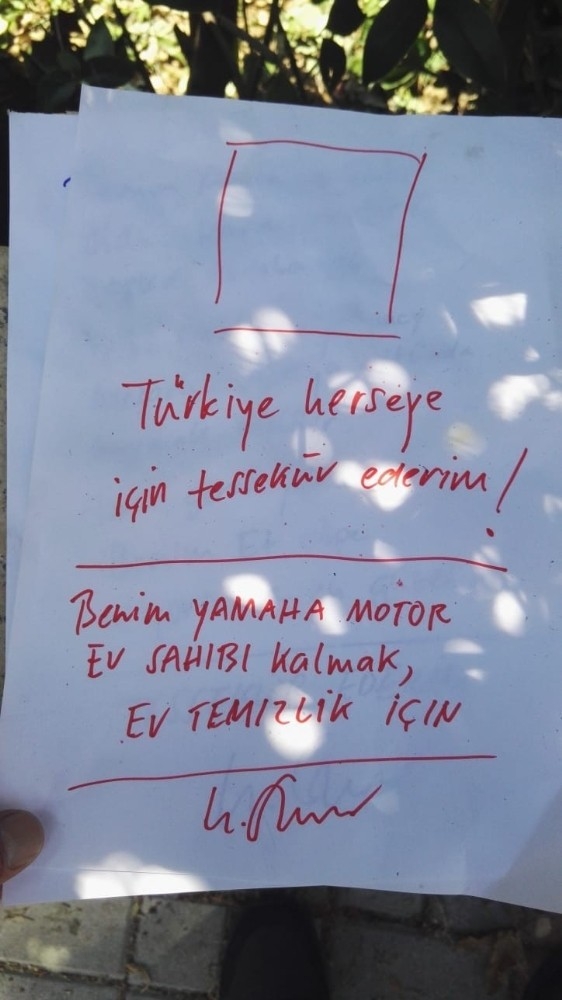 Türkiye herseye
için tessekür ederim!
Benim YAMAHA MOTOR
EV SAHIBI kalmak,
EV TEMIZLIK İÇIN